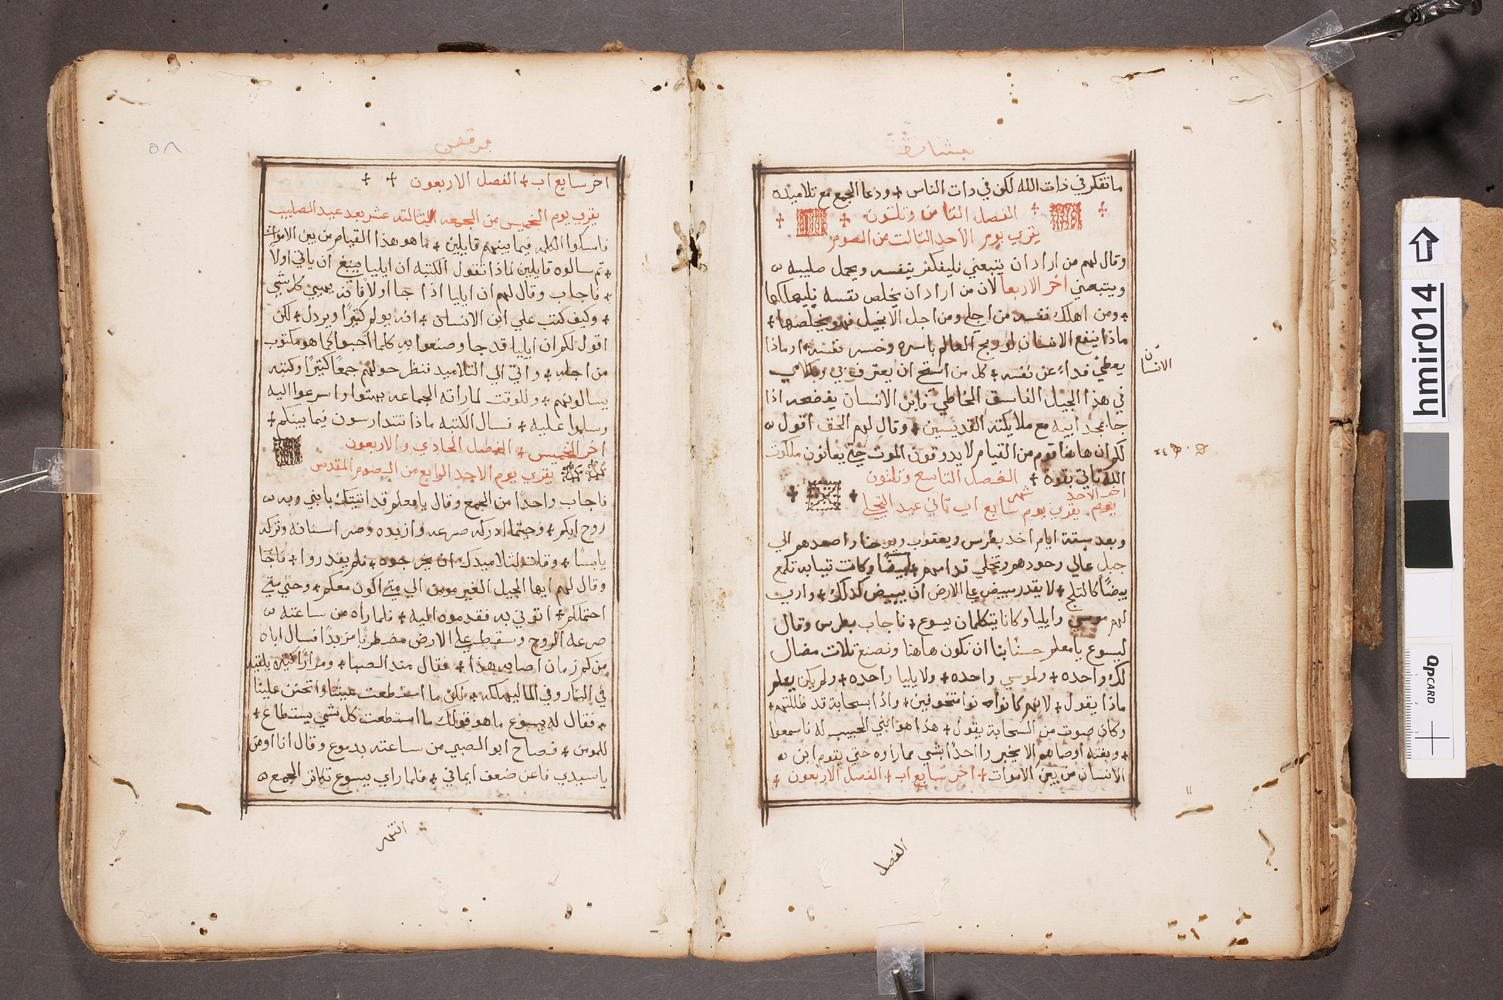 بشارة
ما تفكر في ذات الله لكن في ذات الناس + ودعا الجمع مع تلاميذه
الفصل الثامن وتلتون
يقرى يوم الاحد الثالث من الصوم
وقال لهم من اراد ان يتبعني فليفكر بنفسه ويحمل صليبه
ويتبعني اخر الاربعا لان من اراد ان يخلص نفسه فليهلكها
+ ومن اهلك نفسه من اجلي ومن اجل الانجيل فهو يخلصها +
ماذا ينفع الانسان لو ربح العالم باسره وخسر نفسه او ماذا
يعطي فداء عن نفسه + كل من استحى ان يعترف بي وبكلامي
الانسان
في هذا الجيل الفاسق الخاطي فابن الانسان يفضحه اذا
جا بمجد ابيه مع ملايكته القديسين + وقال لهم الحق اقول
لكم ان هاهنا قوم من القيام لا يدوقون الموت حتى يعاينون ملكوت
الله تاتي بقوه + الفصل التاسع وتلتون
اخر الاحد
يقرى يوم سابع اب تاني عيد التجلي
وبعد ستة ايام اخد بطرس ويعقوب ويوحنا واصعدهم الى
جبل عالي وحدهم وتجلى قدامهم وكانت تيابه تلمع
بيضًا كالتلج + لا يقدر مبيض على الارض ان يبيض كدلك + واريت
لهم موسى وايليا وكانا يتكلمان يسوع + فاجاب بطرس وقال
ليسوع يا معلم حسنًا بنا ان نكون هاهنا ونصنع تلات مضال
لك واحده + ولموسى واحده + ولايليا واحده + ولم يكن يعلم
ماذا يقول + لانهم كانوا متخوفين + واذا بسحابة قد ظللتهم +
وكان صوت من السحابة يقول + هذا هو ابني الحبيب له فاسمعوا
+ وبغته اوصاهم الا يخبروا احدًا بشي مما راوه حتى يقوم ابن
الانسان من بين الاموات + اخر سابع اب + الفصل الاربعون +
الفصل
مرقص
٥٨
اخر سابع اب + الفصل الاربعون + +
يقرى يوم الخميس من الجمعه التالته عشر بعد عيد الصليب
فامسكوا الكلمه فيما بينهم قايلين + ما هو هذا القيام من بين الاموات
+ تم سالوه قايلين لماذا تقول الكتبه ان ايليا ينبغي ان ياتي اولا
+ فاجاب وقال لهم ان ايليا اذا جا اولا فانه يهيى كل شي
+ وكيف كتب على ابن الانسان + انه يولم كتيرا ويرذل + لكن
اقول لكم ان ايليا قد جا وصنعوا به كلما احبوا كما هو مكتوب
من اجله + واتى الى التلاميد فنظر حولهم جمعًا كتيرًا وكتبه
يسالونهم + وللوقت لما راته الجماعه بهتوا واسرعوا اليه
وسلموا عليه + فسال الكتبه ماذا تتدارسون فيما بينكم +
اخر الخميس + الفصل الحادي والاربعون
يقرى يوم الاحد الرابع من الصوم المقدس
فاجاب واحدًا من الجمع وقال يا معلم قد اتيتك بابني وبه
روح ابكم + وحيتما ادركه صرعه وازبده وصر اسنانه وتركه
يابسًا + وقلت لتلاميدك ان يخرجوه + فلم يقدروا + فاجاب
وقال لهم ايها الجيل الغير مومن الى متى اكون معكم + وحتى متى
احتملكم + اتوني به فقدموه اليه + فلما راه من ساعته
صرعه الروح وسقط على الارض مضطربًا مزبدًا فسال اباه
من كم زمان اصابه هذا + فقال مند الصبا + ومرارًا كتيره يلقيه
في النار وفي الما ليهلكه + لكن ما استطعت عينا وتحنن علينا
+ فقال له يسوع ما هو قولك ما استطعت كل شي يستطاع +
للمومن + فصاح ابو الصبي من ساعته بدموع وقال انا اومن
يا سيدي فاعن ضعف ايماني + فلما راى يسوع تكاتر الجمع
انتهر
hmir014
QPCARD